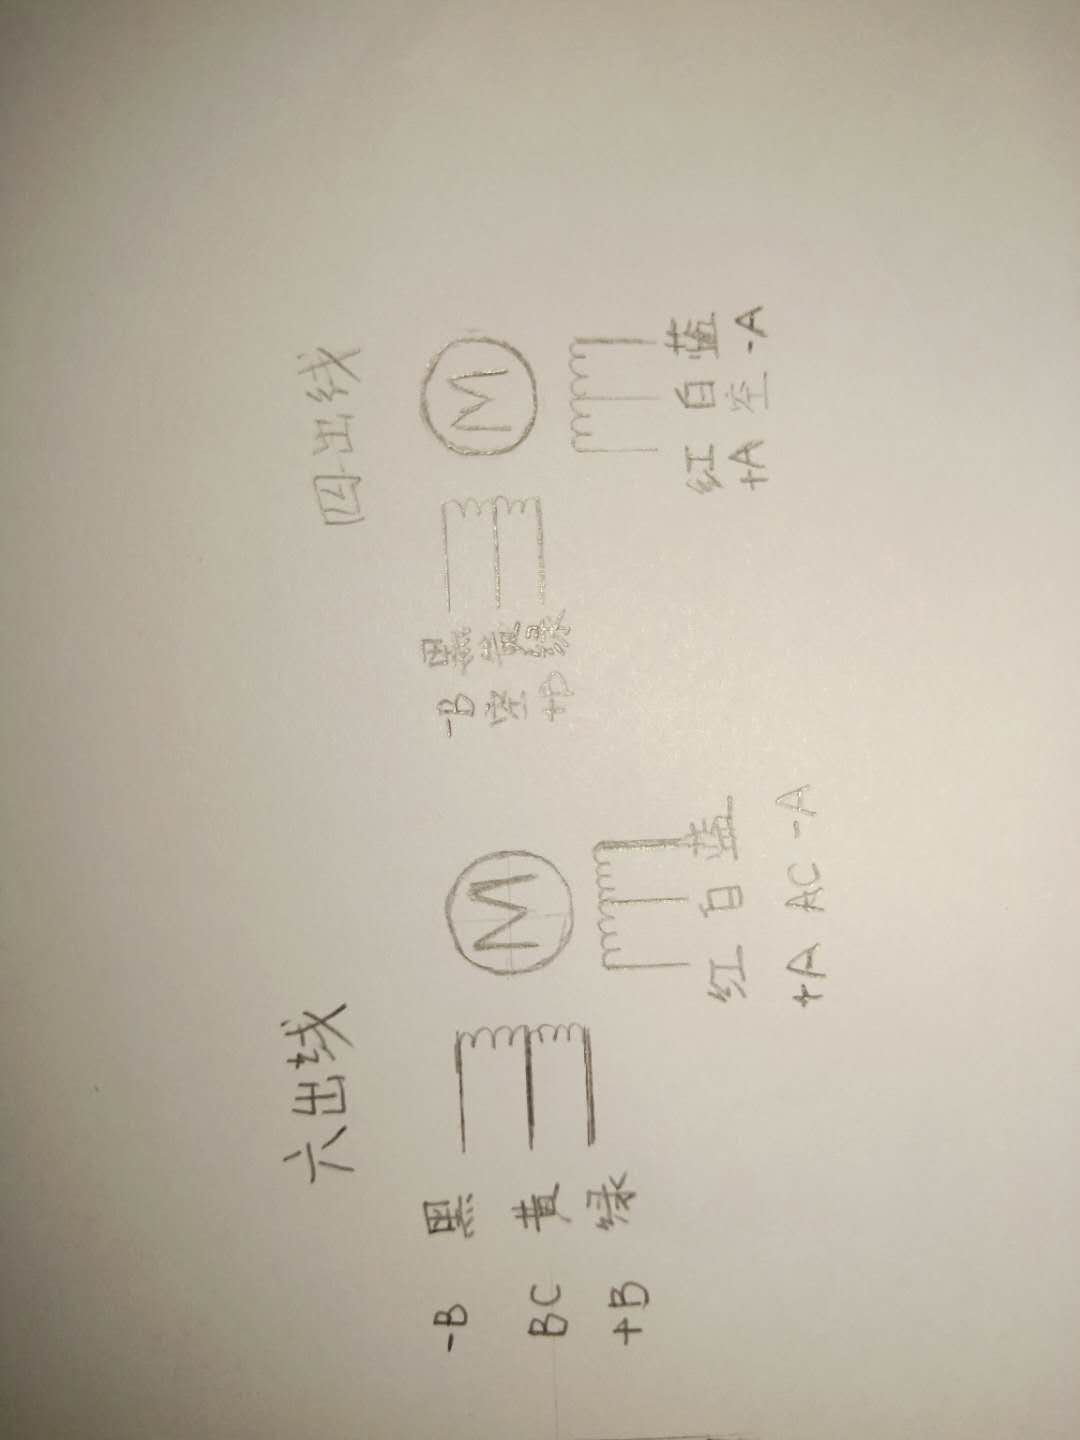 六出线
-B 黑 M
BC 黄
+B 绿
红 白 蓝
+A AC -A
四出线
-B 黑 M
空 黄
+B 绿
红 白 蓝
+A 空 -A